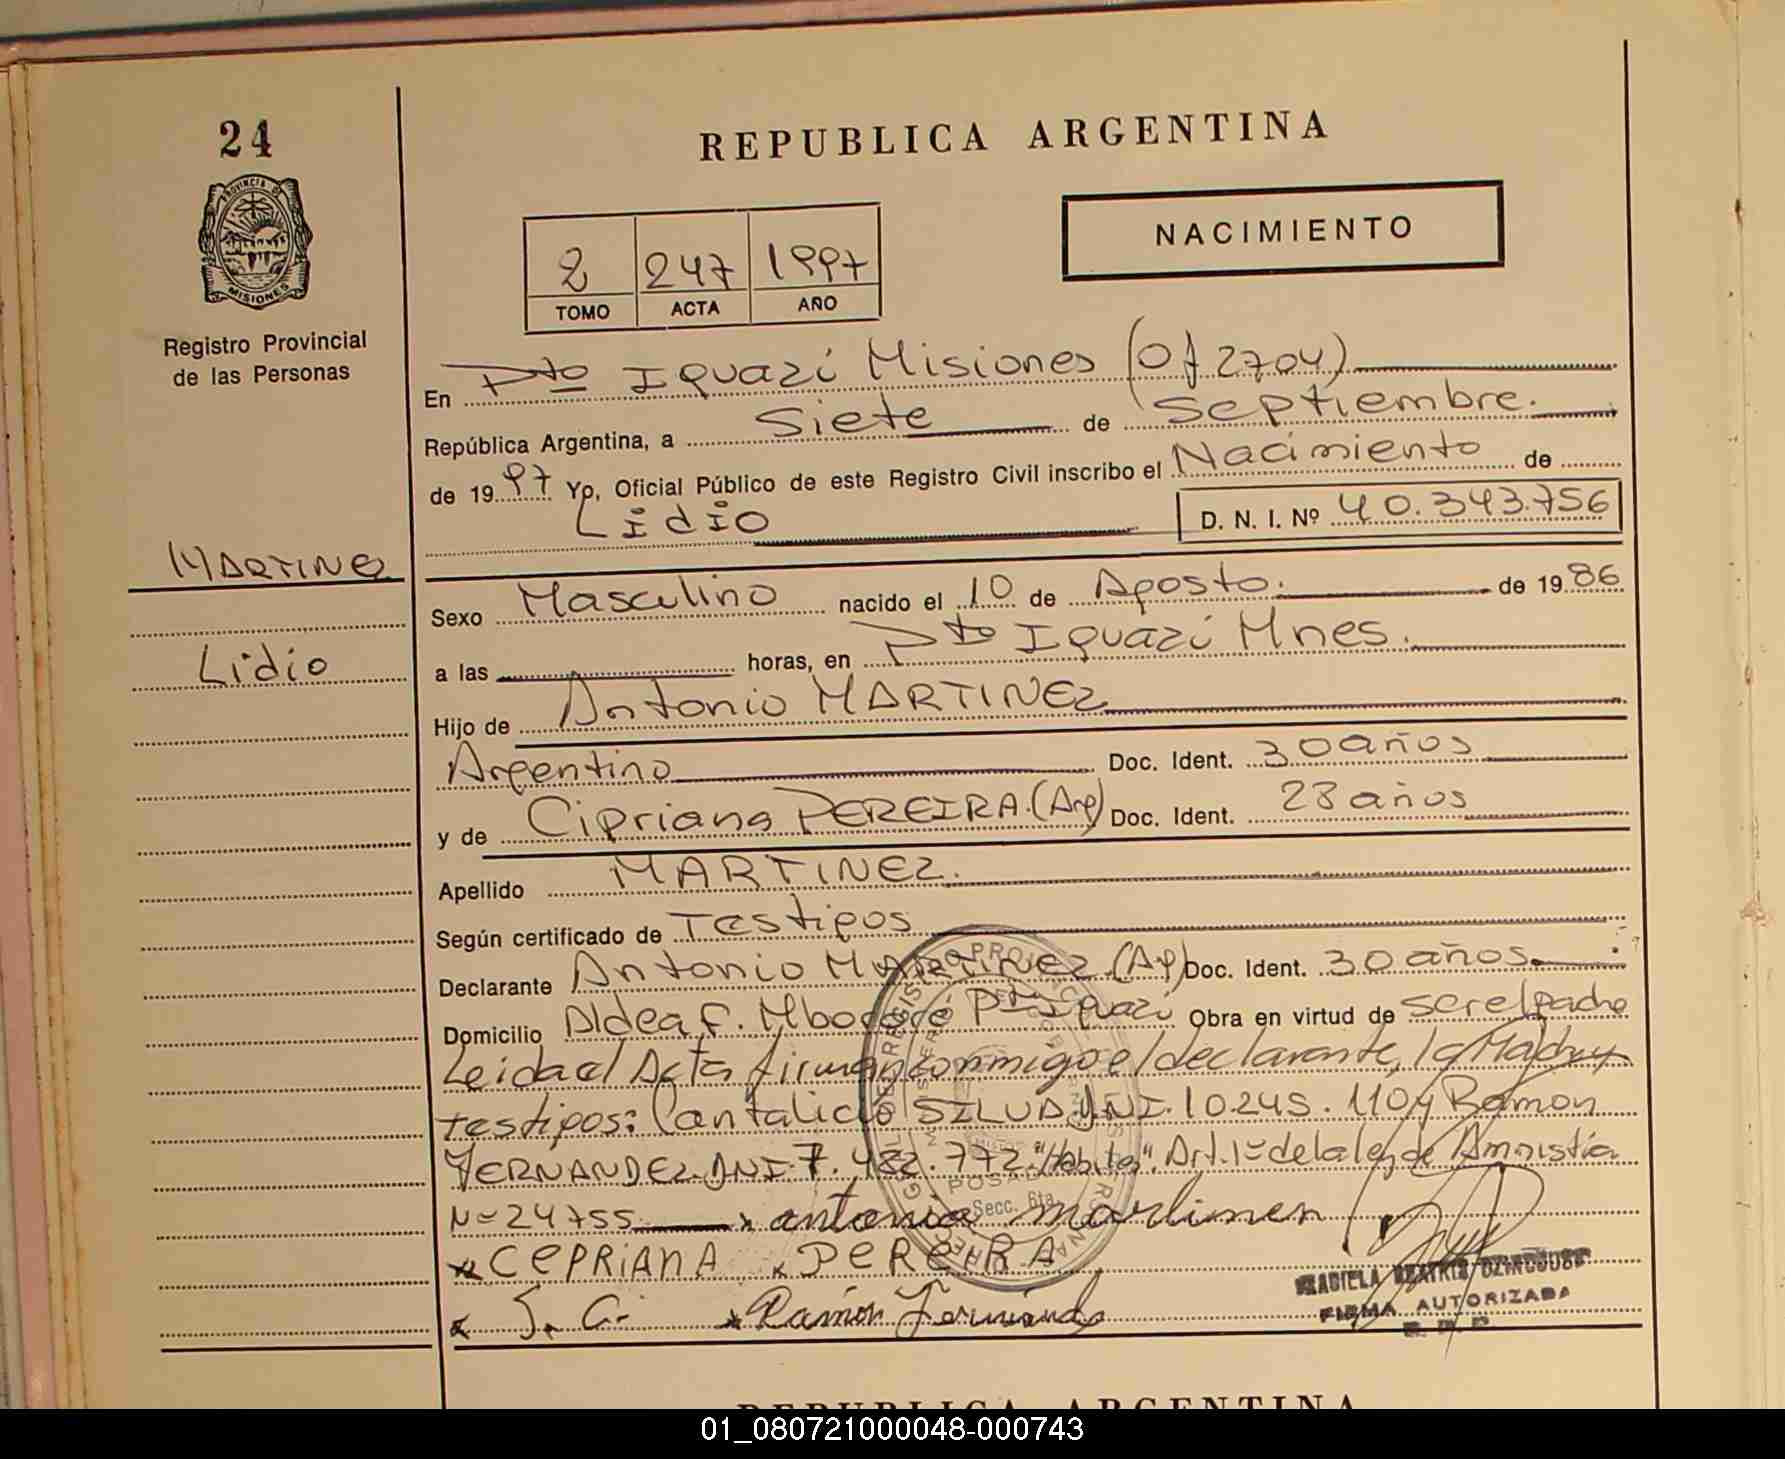 24
REPUBLICA ARGENTINA
PROVINCIA DE
MISIONES
NACIMIENTO
2 247 1997
TOMO ACTA AÑO
Registro Provincial
de las Personas
En Pto Iguazú Misiones (Of 2704)
República Argentina, a Siete de Septiembre.
de 1997 Yo, Oficial Público de este Registro Civil inscribo el Nacimiento de
Lidio D. N. I. Nº 40.343.756
MARTINEZ
Sexo Masculino nacido el 10 de Agosto. de 1986
Lidio
a las horas, en Pto Iguazú Mnes.
Hijo de Antonio MARTINEZ
Argentino Doc. Ident. 30 años
y de Cipriana PEREIRA (Arg) Doc. Ident. 28 años
Apellido MARTINEZ.
Según certificado de Testigos
Declarante Antonio MARTINEZ (Arg) Doc. Ident. 30 años
Domicilio Aldea F. Mbororé Pto Iguazú Obra en virtud de ser el padre
Leida el Acta firman conmigo el declarante, la Madre y
testigos: Cantalicio SILVA DNI. 10.245.110 y Ramon
FERNANDEZ DNI 7.482.772 "Habita". Art. 1º de la ley de Amnistía
Nº 24755 x antonio martines
x CEPRIANA x PEREIRA
x S. C. x Ramón Fernando
POSADAS
Secc. 6ta.
FIRMA AUTORIZADA
REPUBLICA ARGENTINA
01_080721000048-000743